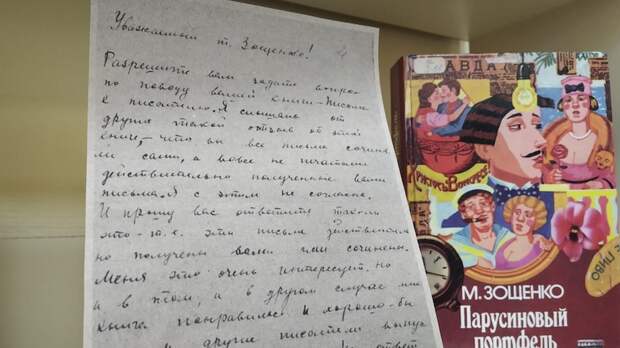 Уважаемый т. Зощенко!
Разрешите вам задать вопро
по поводу вашей книги-Письма
к писателю. Я слышала от
других такой отзыв от этой
книге, – что вы все письма сочиня
ли сами, а вовсе не печатали
действительно полученные вами
письма. Я с этим не согласна.
И прошу вас ответить
это-т.е. эти письма действитель
но получены вами или сочинены.
Меня это очень интересует. Но
и в том, и в другом случае мне
книга понравилась и хорошо-бы
и другие писатели выпус
ответ
АВДА
ПИВО
М. ЗОЩЕНКО
Парусиновый
портфель